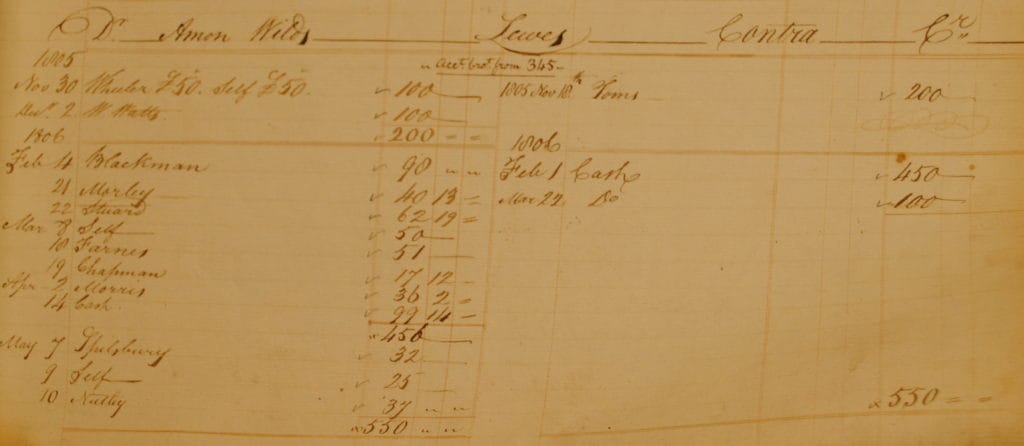 Dr. Amon Wilds Lewes Contra Cr.
Acct. brot. from 345
1805
Nov 30 Wheeler £50. Self £50. 100
2 W. Watts 100
200 " "
1806
Feb 4 Blackman 98 " "
21 Morley 40 13 "
22 Stuard 62 19 "
Mar 8 Self 50
18 Farnes 51
19 Chapman 17 12
Apr 2 Morris 36 2 "
14 Cash 99 14 "
456
May 7 Spilsbury 32
9 Self 25
10 Nutley 37 " "
550 " "
1805 Nov 18th Toms 200
1806
Feb 1 Cash 450
Mar 22 Do 100
550 " "